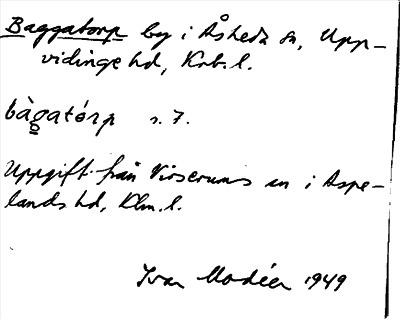 Baggatorp by i Åsheda sn, Upp-
vidinge hd, Krb. l.
bàgatórp s. 7.
Uppgift från Virserums sn i Aspe-
lands hd, Klm. l.
Ivar Modéer 1949